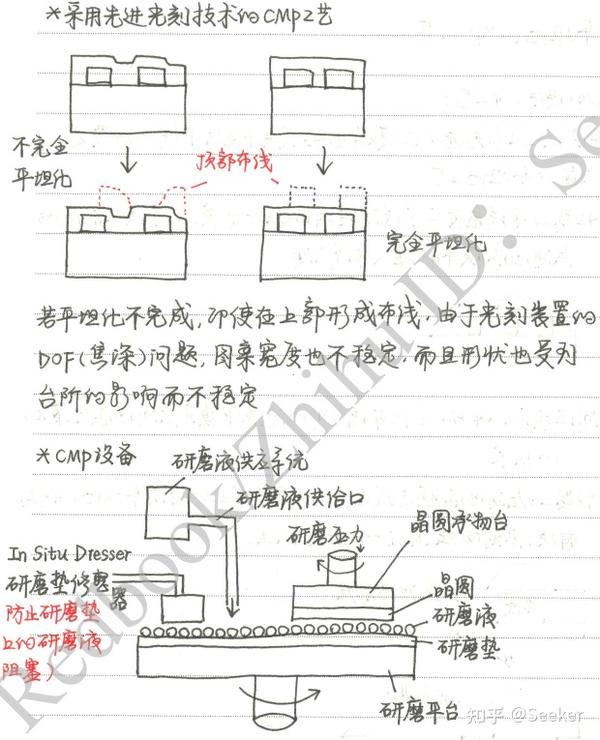 *采用先进光刻技术的CMP工艺
不完全
平坦化
顶部布线
完全平坦化
若平坦化不完成,即使在上部形成布线,由于光刻装置的
DOF(焦深)问题,图案宽度也不稳定,而且形状也受到
台阶的影响而不稳定
*CMP设备
研磨液供应系统
研磨液供给口
研磨压力
晶圆承物台
In Situ Dresser
研磨垫修整
器
防止研磨垫
上的研磨液
阻塞)
晶圆
研磨液
研磨垫
研磨平台
Redbook/Zhihu ID: Se
知乎 @Seeker